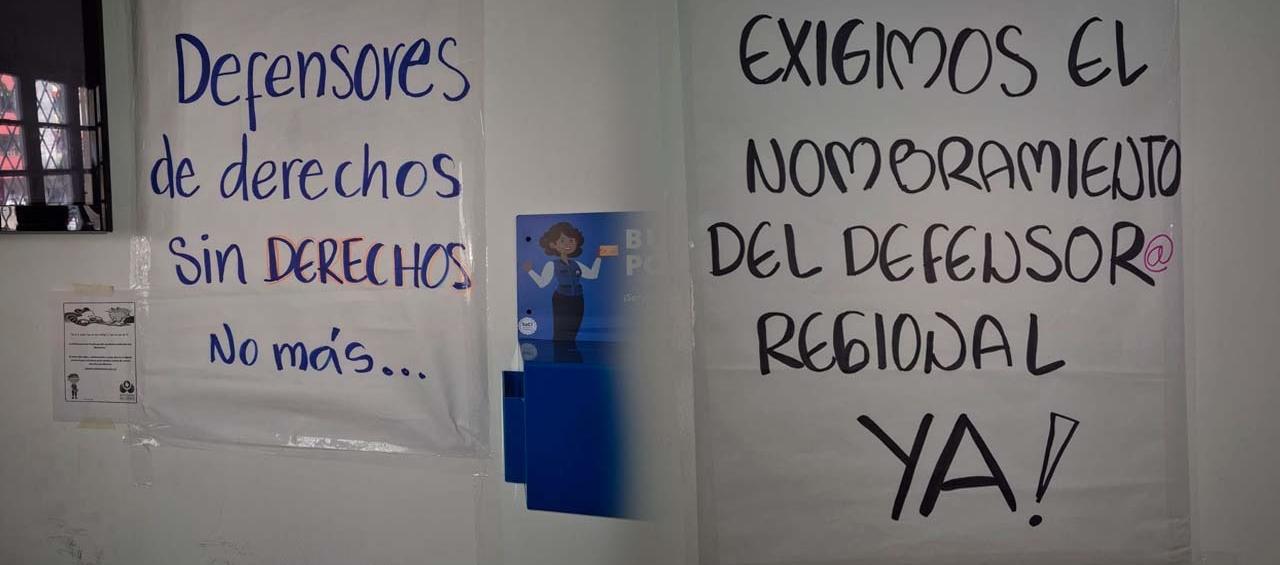 Defensores
de derechos
sin DERECHOS
No más...
EXIGIMOS EL
NOMBRAMIENTO
DEL DEFENSOR@
REGIONAL
YA!